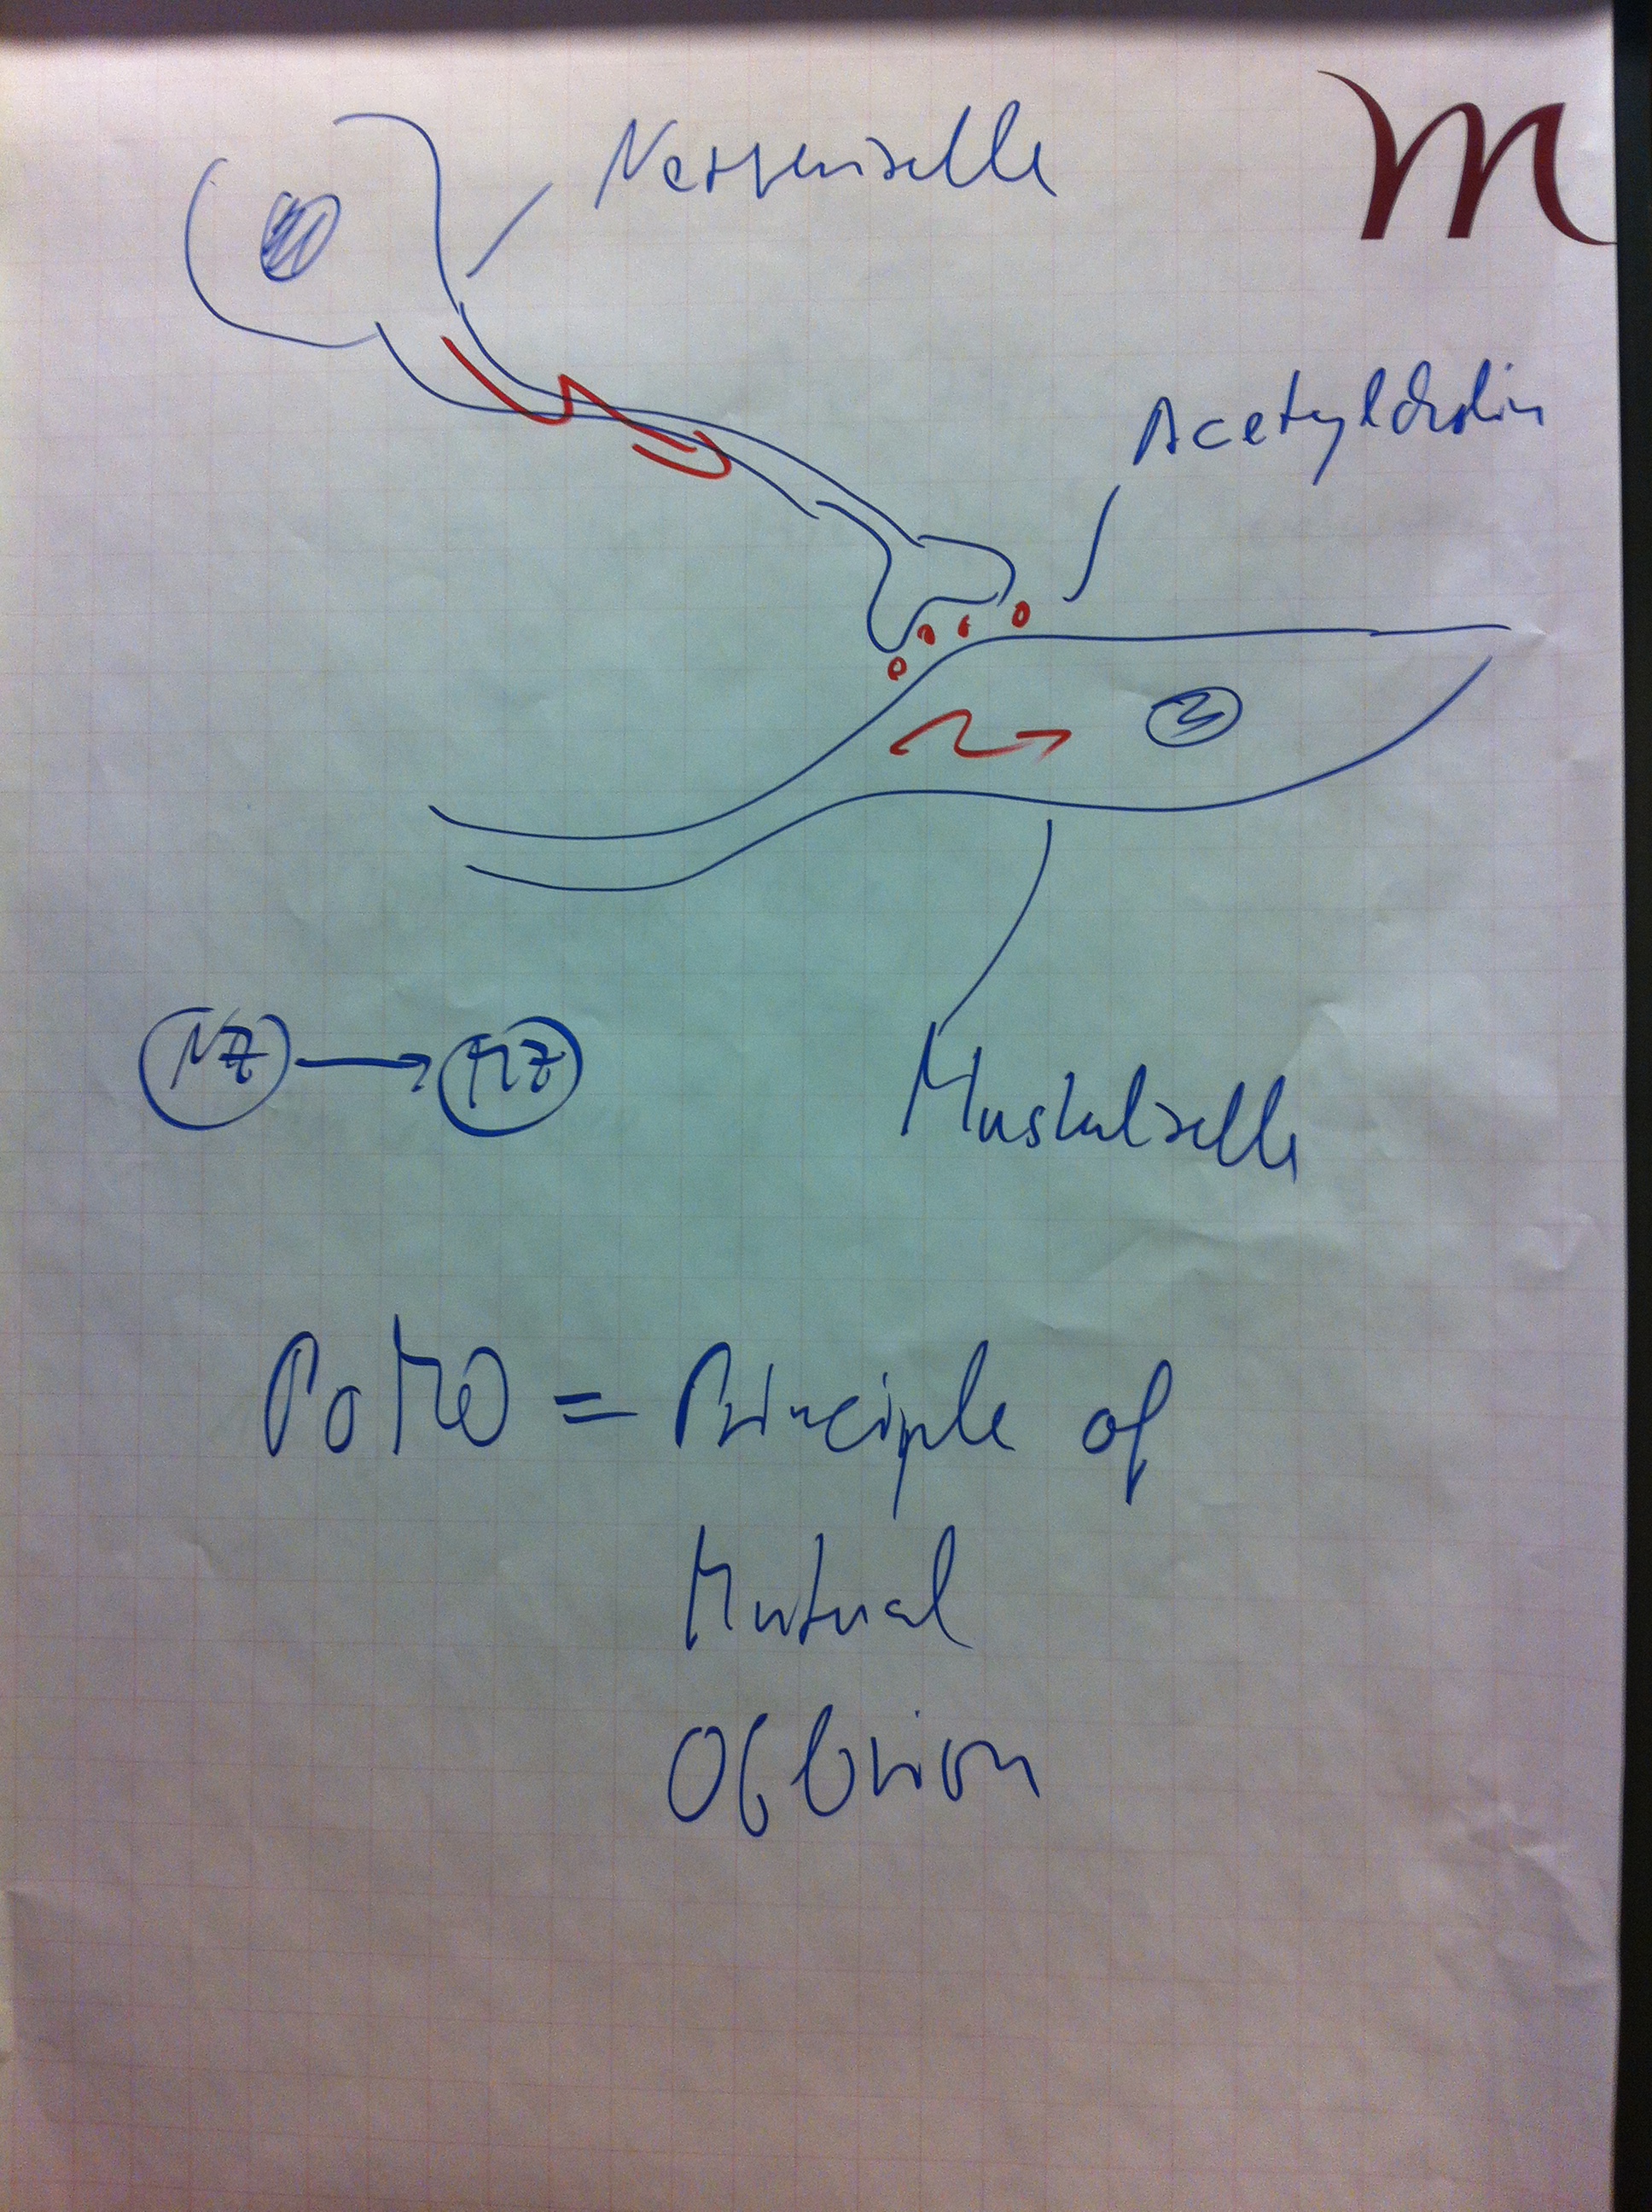 m
Nervenzelle
Acetylcholin
NZ → MZ
Muskelzelle
PoMO = Principle of
Mutual
Oblivion